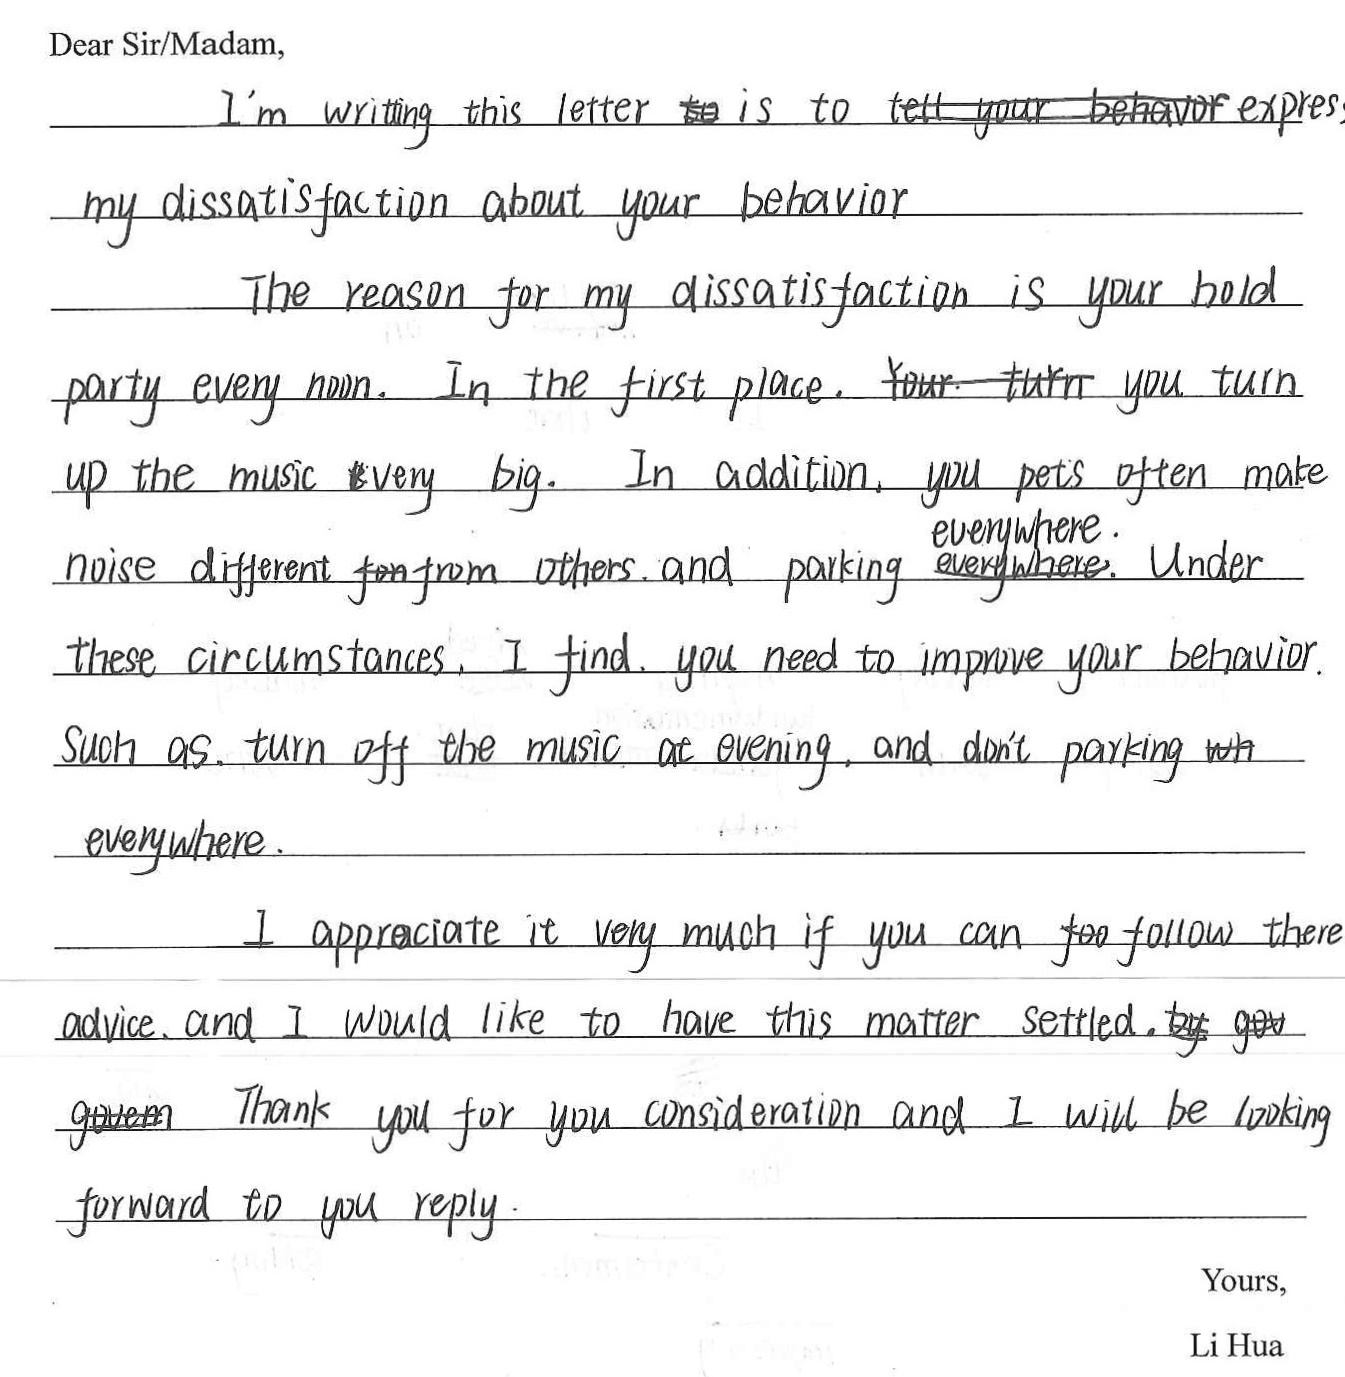 Dear Sir/Madam,
I'm writing this letter is to express
my dissatisfaction about your behavior
The reason for my dissatisfaction is your hold
party every noon. In the first place. you turn
up the music very big. In addition, you pets often make
everywhere.
noise different from others. and parking Under
these circumstances, I find. you need to improve your behavior.
Such as. turn off the music at evening, and don't parking
everywhere.
I appreciate it very much if you can follow there
advice, and I would like to have this matter settled.
Thank you for you consideration and I will be looking
forward to you reply.
Yours,
Li Hua